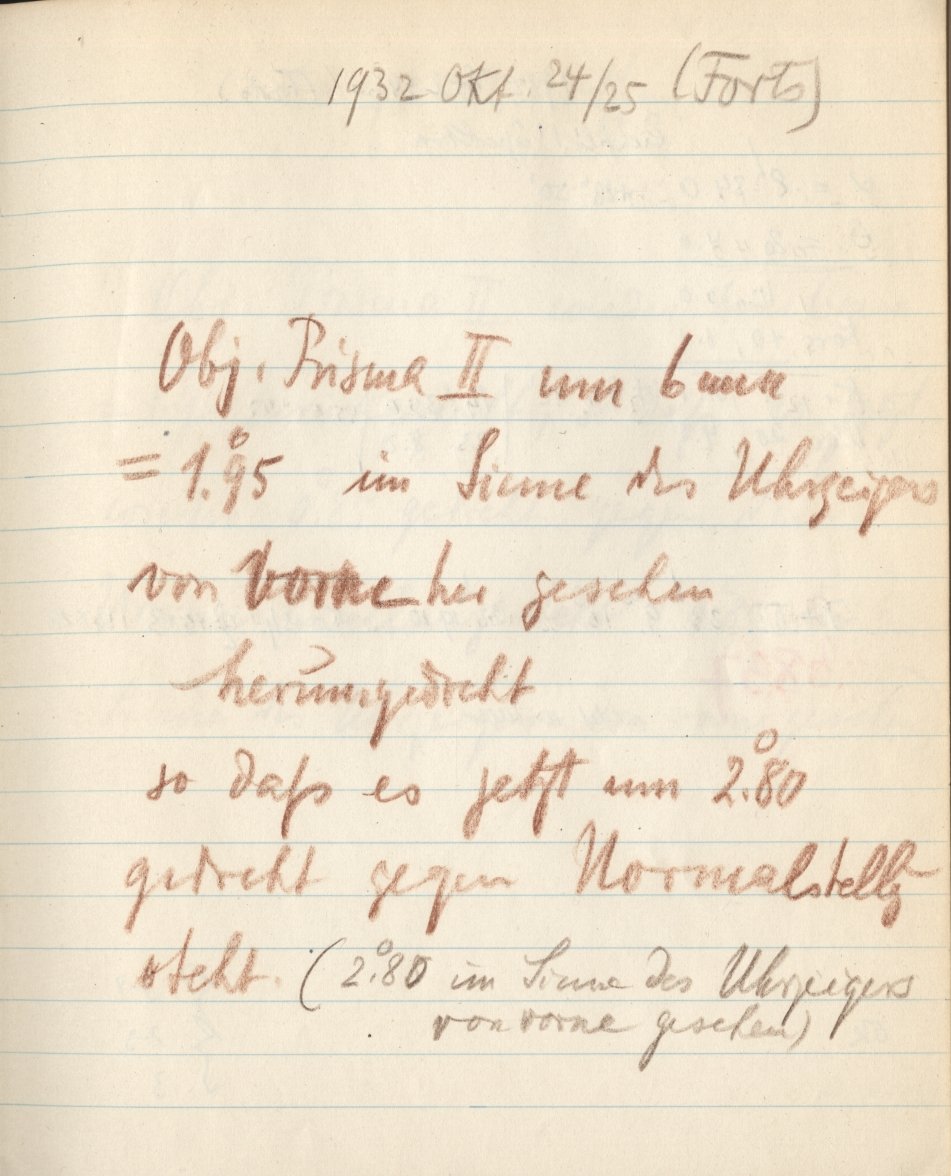 1932 Okt 24/25 (Forts)
Obj. Prisma II um 6 mm
= 1.°95 im Sinne des Uhrzeigers
von vorne her gesehen
herumgedreht
so daß es jetzt um 2.°80
gedreht gegen Normalstellg
steht. (2.°80 im Sinne des Uhrzeigers
von vorne gesehen)